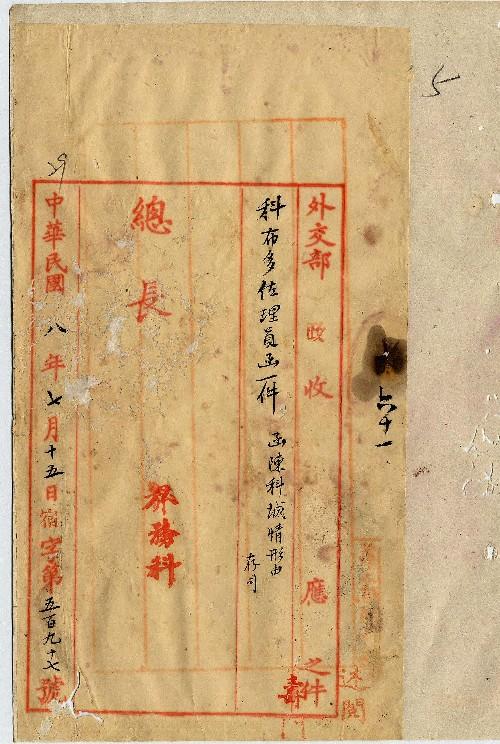 5
六十一
外交部 收 收 應 之件
科布多佐理員函一件 函陳科城情形由
存司
總長
務科
中華民國八年七月十五日宿字第五百九十七號